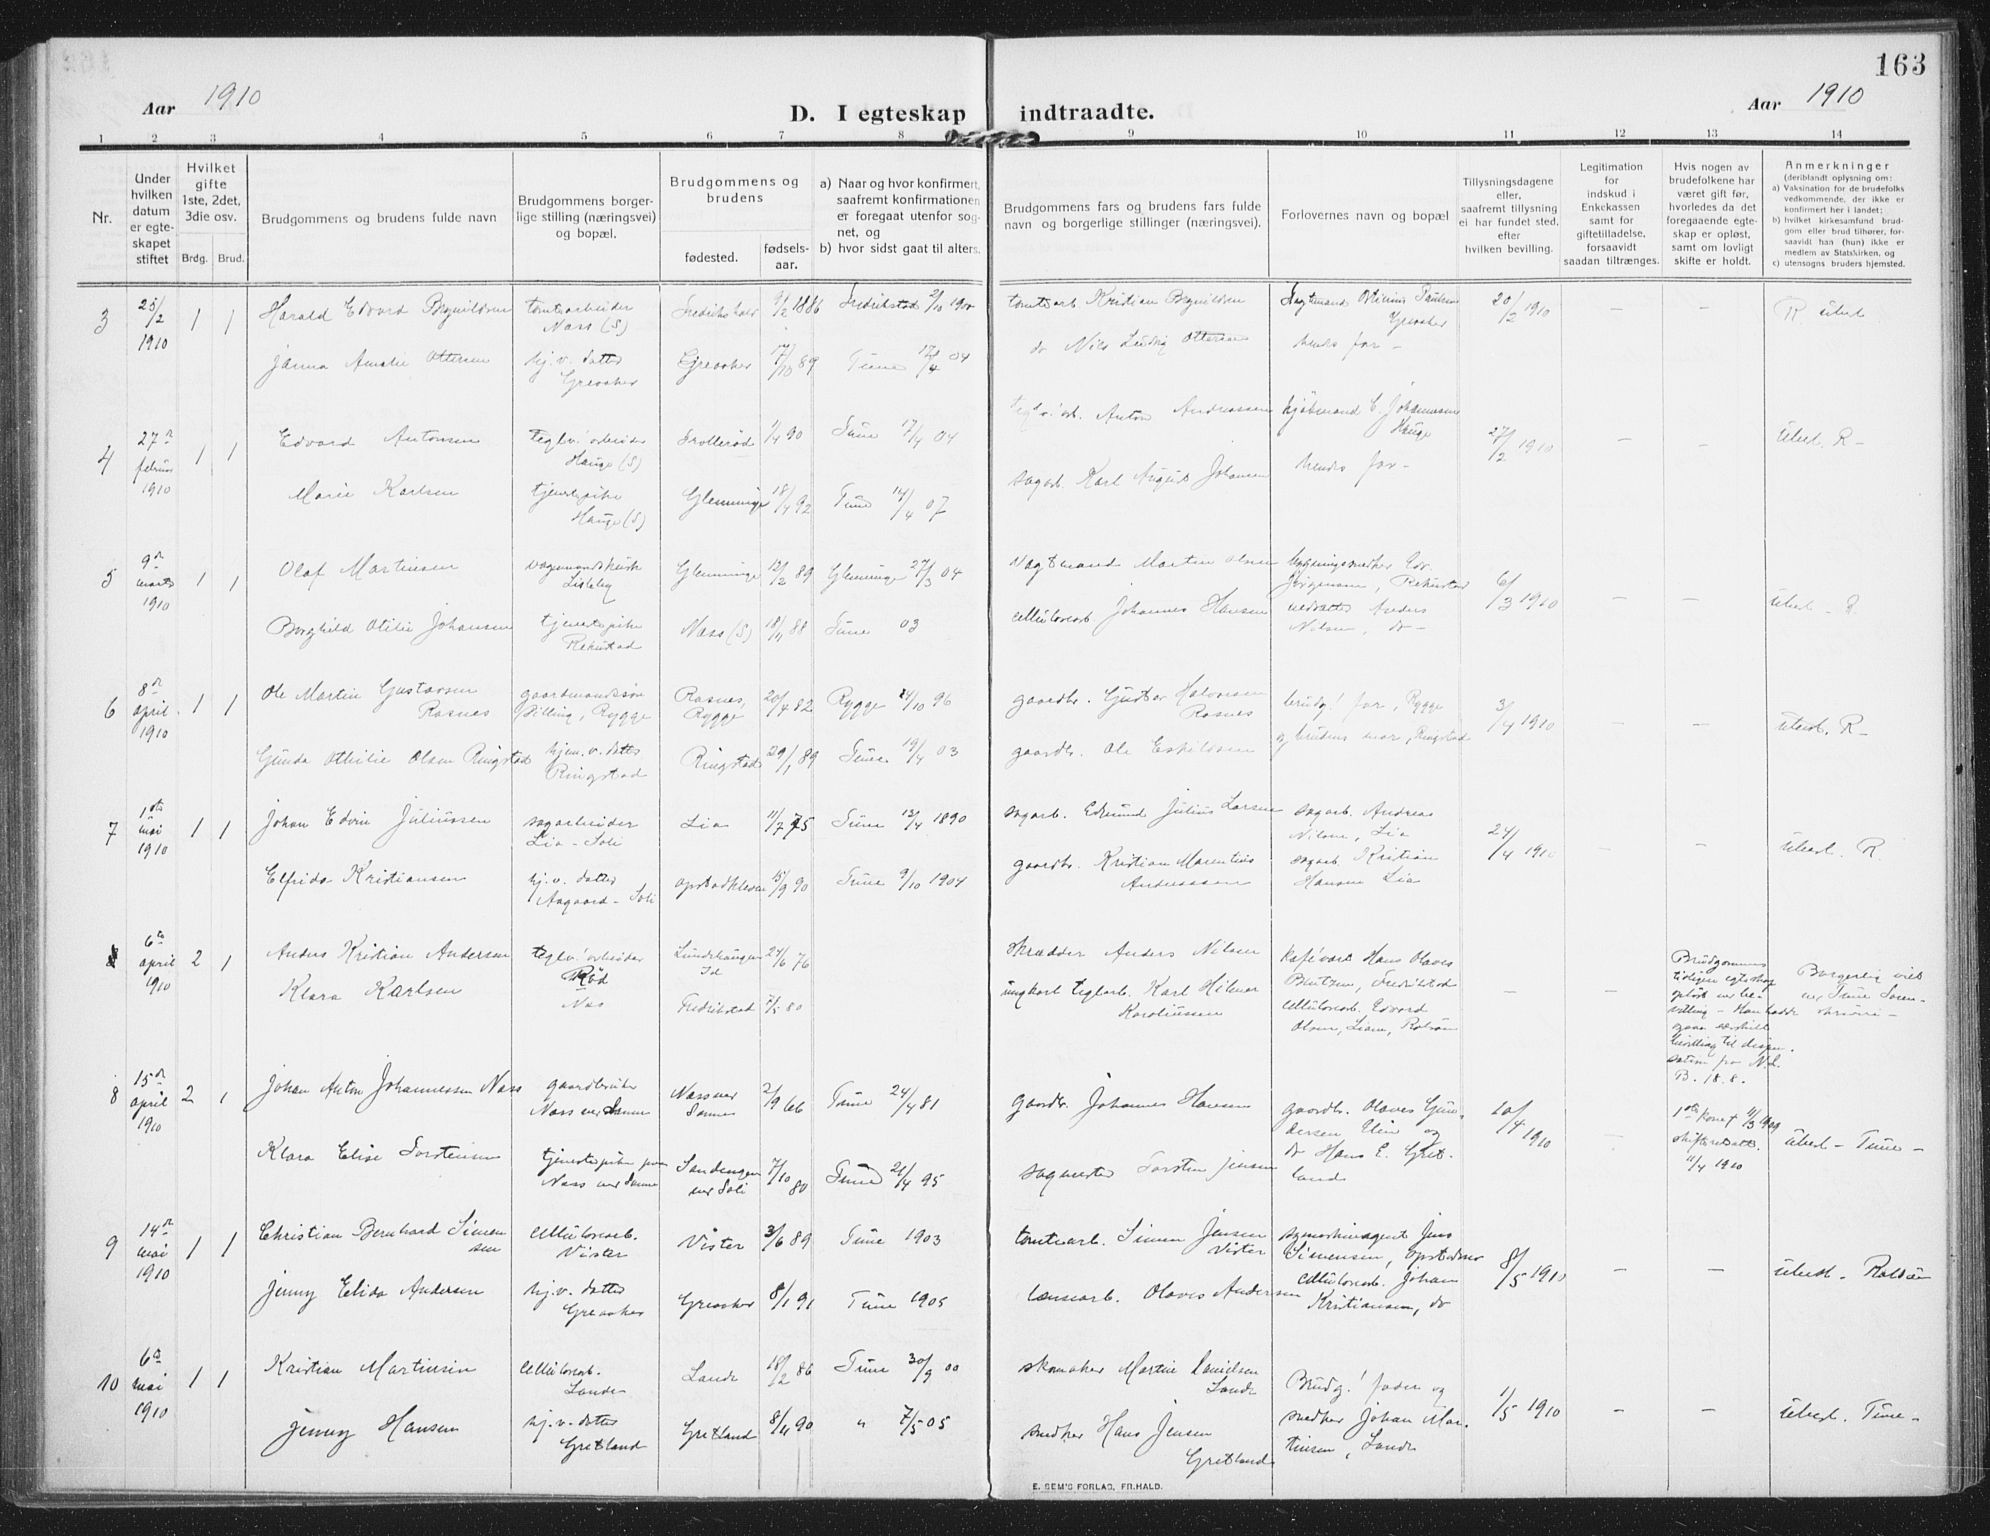 163
Aar 1910
D. I egteskap indtraadte.
Aar 1910
1 2 3 4 5 6 7 8 9 10 11 12 13 14
Nr.
Under hvilken datum er egteskapet stiftet
Hvilket gifte 1ste, 2det, 3die osv.
Brdg. Brud.
Brudgommens og brudens fulde navn
Brudgommens borgerlige stilling (næringsvei) og bopæl.
Brudgommens og brudens
fødested.
fødselsaar.
a) Naar og hvor konfirmert, saafremt konfirmationen er foregaat utenfor sognet, og
b) hvor sidst gaat til alters.
Brudgommens fars og brudens fars fulde navn og borgerlige stillinger (næringsvei).
Forlovernes navn og bopæl
Tillysningsdagene eller, saafremt tillysning ei har fundet sted, efter hvilken bevilling.
Legitimation for indskud i Enkekassen samt for giftetilladelse, forsaavidt saadan tiltrænges.
Hvis nogen av brudefolkene har været gift før, hvorledes da det foregaaende egteskap er opløst, samt om lovligt skifte er holdt.
Anmerkninger (deriblandt oplysning om:
a) Vaksination for de brudefolks vedkommende, der ikke er konfirmert her i landet;
b) hvilket kirkesamfund brudgom eller brud tilhører, forsaavidt han (hun) ikke er medlem av Statskirken, og
c) utensogns bruders hjemsted.
3 25/2 1910 1 1 Harald Edvard tomtearbeider Næss (S) Fredrikshald 9/2 1886 Fredrikstad 2/10 1900 tomtearb. Kristian Sagtmand Paulsen Greaaker 20/2 1910 — — R
Janna Amalie Ottersen hj.v. datter Greaaker Greaaker 17/10 89 Tune 17/4 04 do Nils Ludvig Ottersen hendes far —
4 27de februar 1910 1 1 Edvard Antonsen teglv. arbeider Hauge (S) Trollerød 1/4 90 Tune 17/4 04 teglv. arb. Anton Andreassen kjøbmand C. Johannesen Hauge 27/2 1910 — — R —
Marie Karlsen tjenestepike Hauge (S) Glemminge 18/4 92 Tune 14/4 07 sagarb. Karl August Johansen hendes far —
5 9de marts 1910 1 1 Olaf Martinsen Lisleby Glemminge 12/2 89 Glemminge 27/3 04 Vagtmand Martin Olsen bygningssnedker Edv. Jørgensen, Rekustad 6/3 1910 — — R
Borghild Otilie Johansen tjenestepike Rekustad Næss (S) 18/11 88 Tune 03 cellulosearb. Johannes Hansen Anders Nilsen, do —
6 8de april 1910 1 1 Ole Martin Gustavsen Rosnes gaardmandssøn Dilling, Rygge Rosnes, Rygge 20/4 82 Rygge 4/10 96 gaardbr. Gustav Halvorsen Rosnes brudg.! far, Rygge 3/4 1910 — — R —
Gunda Othilie Olsen Ringstad hjem. v. datter Ringstad Ringstad 29/1 89 Tune 19/4 03 gaardbr. Ole Eskildsen og brudens mor, Ringstad
7 1ste mai 1910 1 1 Johan Edvin Juliussen sagarbeider Lia - Soli Lia 11/7 75 Tune 13/4 1890 sagarb. Edmund Julius Larsen sagarb. Andreas Nilsen, Lia 24/4 1910 — — R.
Elfrida Kristiansen hj. v. datter Aagaard - Soli Opstadkleven 15/9 90 Tune 9/10 1904 gaardbr. Kristian Marentius Andreassen sagarb. Kristian Hansen Lia
6te april 1910 2 1 Anders Kristian Andersen teglv. arbeider Rød Lundehaugen Id 24/6 76 skrædder Anders Nilsen Kafévært Hans Olaves Bentzen, Fredrikstad — Brudgommens tidligere egteskap opløst ved bevilling — Han hadde ogsaa særskilt bevilling til dispensation fra N.L. B. 18. 8. Borgerlig viet av Tune Sorenskriveri —
Klara Karlsen Næs Fredrikstad 7/5 80 ungkarl teglarb. Karl Hilmar Karoliussen cellulosearb. Edvard Olsen,
8 15de april 1910 2 1 Johan Anton Johannessen Næss gaardbruker Næss ved Sanne Næss ved Sanne 2/9 66 Tune 24/4 81 Gaardbr. Johannes Hansen gaardbr. Olaves Gundersen Elin og do Hans E. Gretland 10/4 1910 — 1ste kone † 11/3 1909 skifteretsatt. 11/4 1910 — Tune —
Klara Elise Torstensen tjenestepike paa Næss ved Sanne Sandengen ved Soli 7/10 80 Tune 21/4 95 sagmester Torsten Jensen
9 14de mai 1910 1 1 Christian Bernhard Simensen cellulosearb. Vister Vister 3/6 89 Tune 1903 tomtearb. Simen Jensen Vister symaskinagent Jens Simensen, Opstad 8/5 1910 — — Rolvsøe
Jenny Elida Andersen hj. v. datter Greaaker Greaaker 8/1 91 Tune 1905 lænsearb. Olaves Andersen cellulosearb. Johan Kristiansen, do
10 6te mai 1910 1 1 Kristian Martinsen cellulosearb. Lande Lande 18/2 86 Tune 30/9 00 skomaker Martin Danielsen Lande Brudg.! fader og snedker Johan Martinsen, Lande 1/5 1910 — — Tune —
Jenny Hansen hj. v. datter Gretland Gretland 8/11 90 " 7/5 05 snedker Hans Jensen Gretland
E. SEM'S FORLAG, FR.HALD.